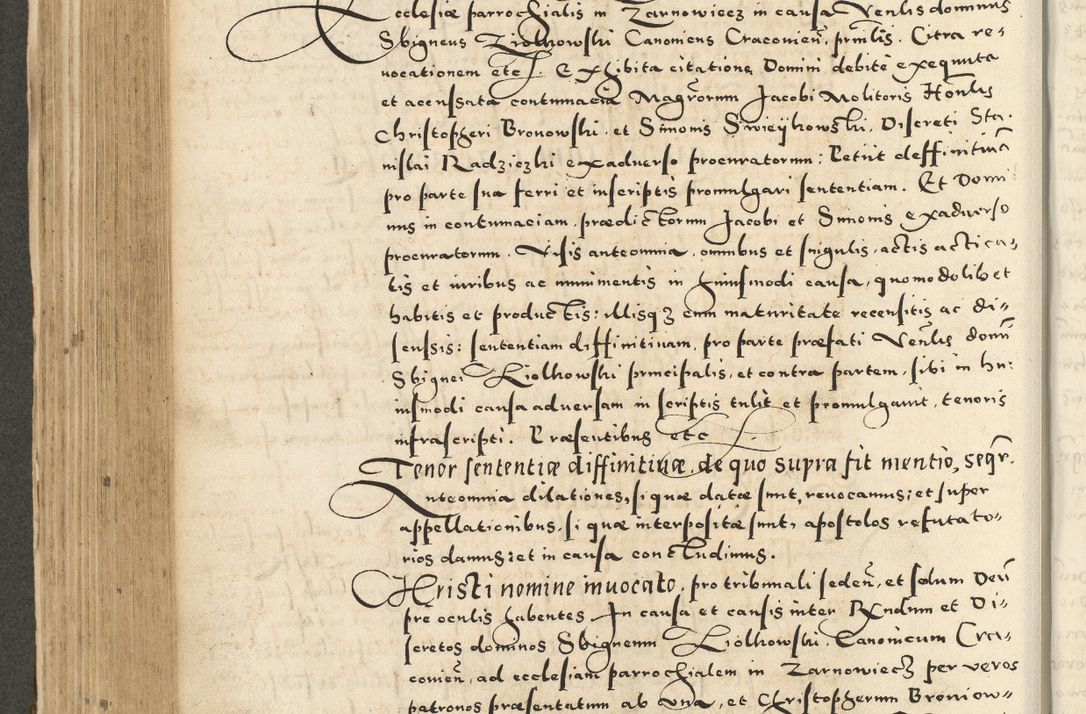 Ecclesiæ parrochialis in Zarnowiecz in causa Venlis dominus
Sbigneus Ziolkowski Canonicus Cracovien, prnlis. Citra re=
vocationem etc. Exhibita citatione Domini debite exequuta
et accussata contumacia Magrorum Jacobi Molitoris Honlis
Christopheri Bronowski, et Simonis Swieykowski, Discreti Sta-
nislai Radziczki exadverso procuratorum: Petiit deffinitiua
pro parte sua ferri et in scriptis promulgari sententiam. Et Domi
nus in contumaciam prædictorum Jacobi et Simonis exadverso
procuratorum. Visis anteomnia, omnibus et singulis, actis acticas,
tis et iuribus ac munimentis in huiusmodi causa, quomodolibet
habitis et productis: illisqz cum maturitate recensitis ac di=
scussis: sententiam diffinitivam, pro parte præfati Venlis domi
Sbignei Ziolkowski principalis, et contra partem, sibi in hu:
iusmodi causa adversam in scriptis tulit et promulgavit, tenoris
infrascripti. Præsentibus etc.
Tenor sententiæ diffinitiuæ, de quo supra fit mentio, seqr.
Anteomnia dilationes, si quæ datæ sunt, revocamus; et super
appellationibus, si quæ interpositæ sunt, apostolos refutato-
rios damus; et in causa concludimus.
CHristi nomine invocato, pro tribunali seden, et solum Deu
præ oculis habentes In causa et causis inter Rndum et Di=
scretos dominos Sbigneum Ziolkowski Canonicum Cra=
covien, ad ecclesiam parrochialem in Zarnowiecz per veros
patronos præsentatum ab una, et Christopherum Broniow=